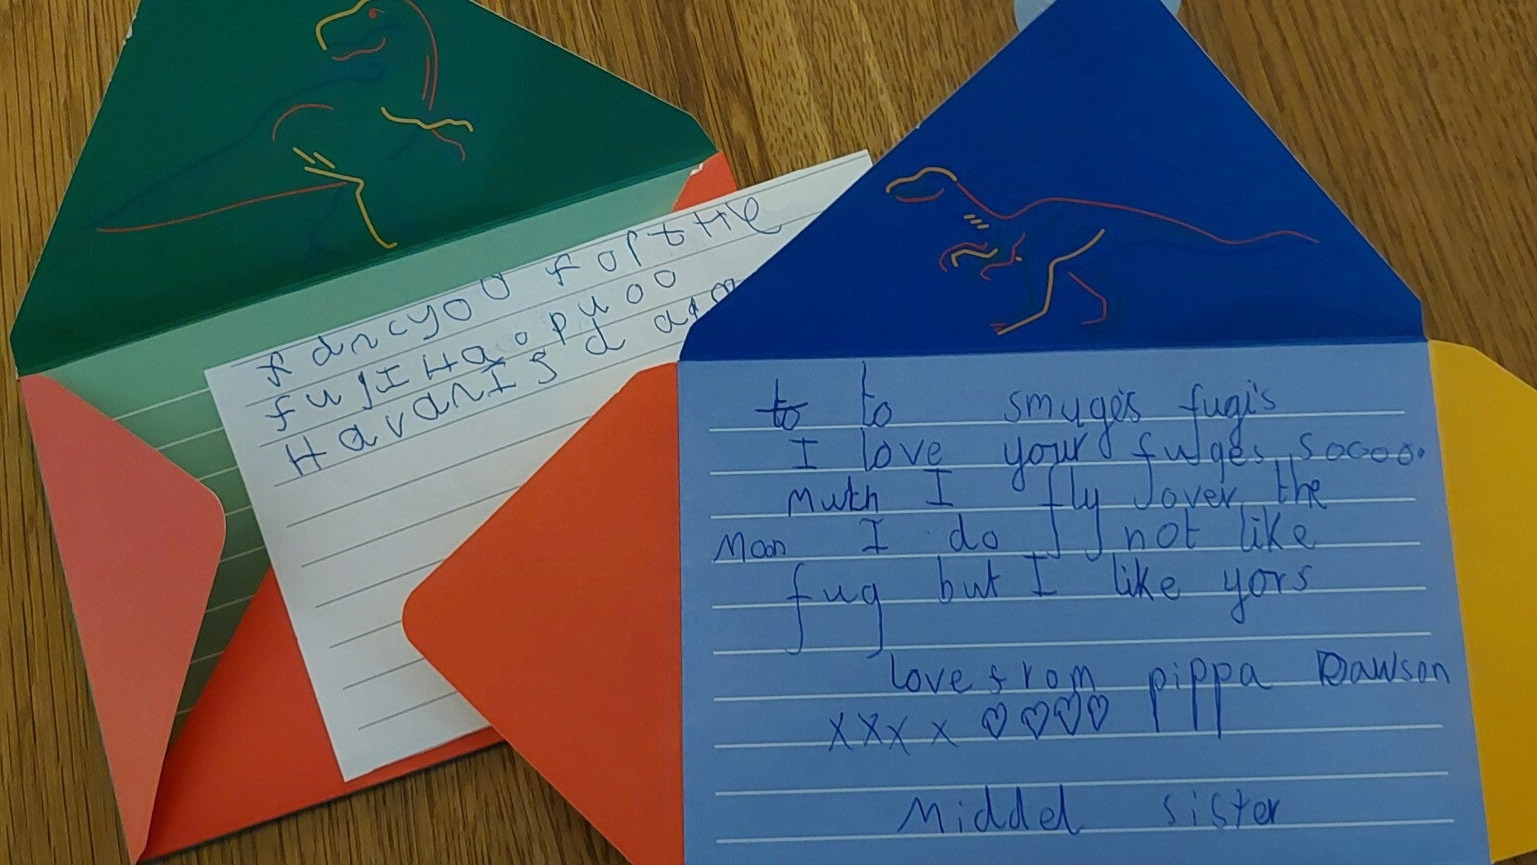 fancyou for the
fuji Ha
Havanis d
to to smuges fugi's
I love your fudges soooo.
Mutch I fly over the
Moon I do not like
fug but I like yors
love from pippa Dawson
xxx x ♡♡♡♡
Middel sister